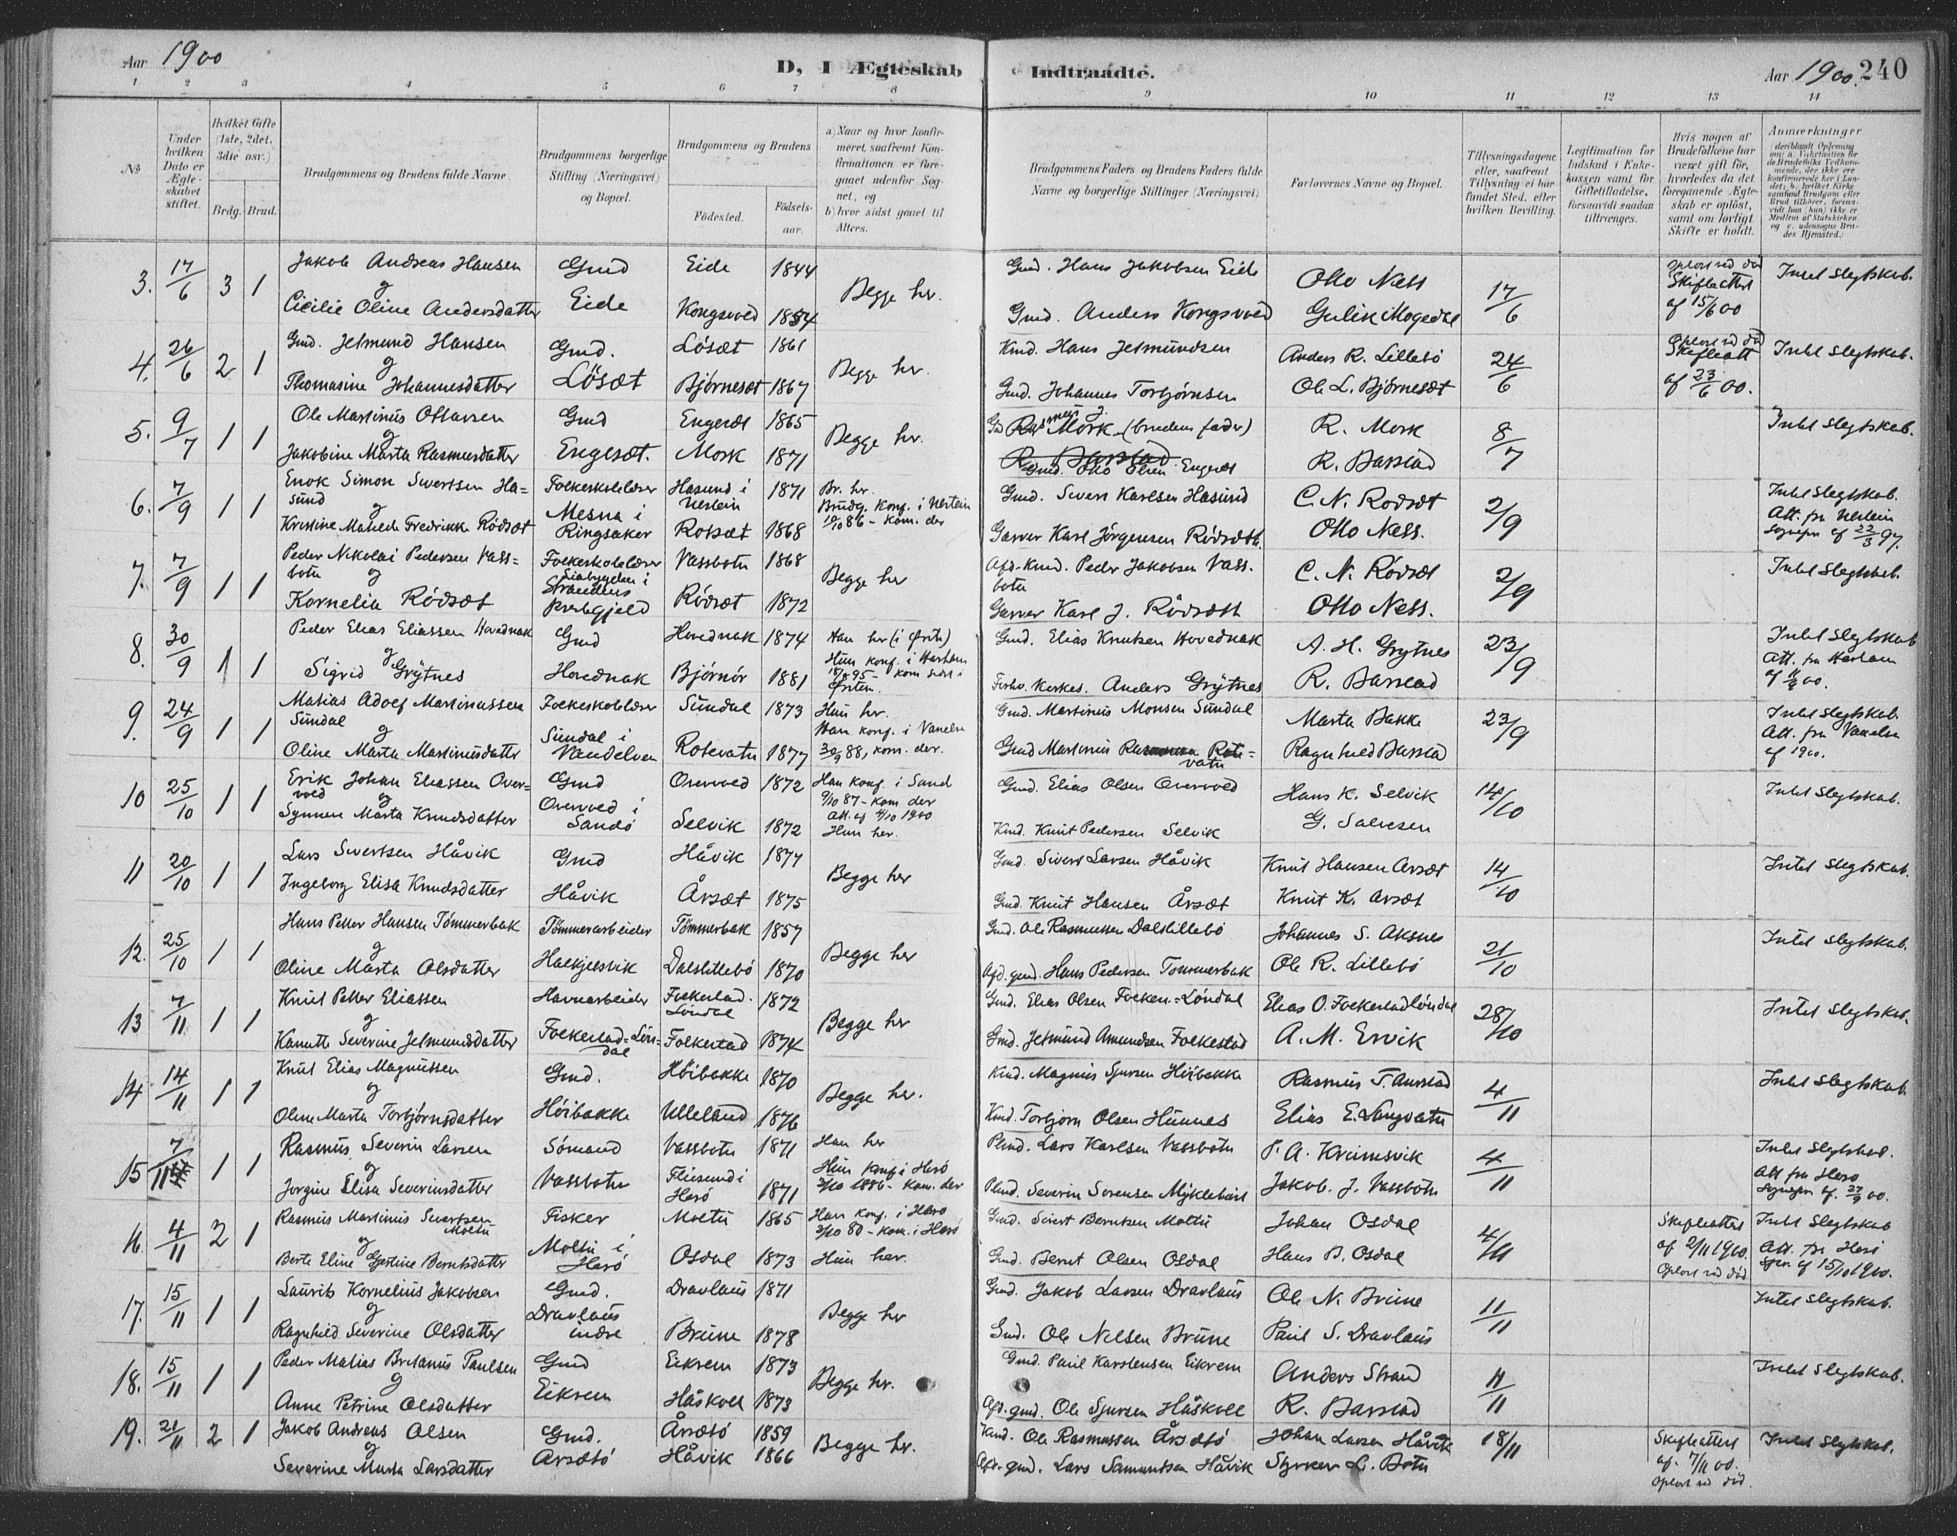 Aar 1900
D, I Ægteskab Indtraadte.
Aar 1900. 240
1 2 3 4 5 6 7 8 9 10 11 12 13 14
№
Under hvilken Dato er Ægteskabet stiftet.
Hvilket Gifte (1ste, 2det, 3die osv.)
Brdg. Brud.
Brudgommens og Brudens fulde Navne.
Brudgommens borgerlige Stilling (Næringsvei) og Bopæl.
Brudgommens og Brudens
Fødested. Fødselsaar.
a) Naar og hvor konfirmeret, saafremt Konfirmationen er foregaaet udenfor Sognet, og
b) hvor sidst gaaet til Alters.
Brudgommens Faders og Brudens Faders fulde Navne og borgerlige Stillinger (Næringsvei)
Forlovernes Navne og Bopæl.
Tillysningsdagene eller, saafremt Tillysning ei har fundet Sted, efter hvilken Bevilling.
Legitimation for Indskud i Enkekassen samt for Giftetilladelse, forsaavidt saadan tiltrænges.
Hvis nogen af Brudefolkene har været gift før, hvorledes da det foregaaende Ægteskab er opløst, samt om lovligt Skifte er holdt.
Anmærkninger
3. 17/6 3 1 Jakob Andreas Hansen Gmd Eide 1844 Begge her. Gmd. Hans Jakobsen Eide Otto Ness 17/6 opløst ved død Skifteattest af 15/6 00 Intet Slegtskab.
og
Cicilie Oline Andersdatter Eide Kongsvod 1854 Gmd. Anders Kongsvod Gulik Mogedal
4. 26/6 2 1 Gmd. Jetmund Hansen Gmd. Løsæt 1861 Begge her. Kmd. Hans Jetmundsen Anders R. Lillebø 24/6 Opløst ved død Skifteatt af 23/6 00. Intet Slegtskab.
og
Thomasine Johannesdatter Løsæt Bjørnesæt 1867 Gmd. Johannes Torbjørnsen Ole L. Bjørnesæt
5. 9/7 1 1 Ole Martinus Ottarsen Gmd Engesæt 1865 Begge her. Mork (brudens fader) R. Mork 8/7 Intet Slegtskab.
og
Jakobine Marta Rasmusdatter Engesæt. Mork 1871 R. Barstad Gmd. Otto Olsen Engesæt R. Barstad
6. 7/9 1 1 Enok Simon Sivertsen Hasund Folkeskolelærer Hasund i Ulstein 1871 Br. her. Brudg. konf. i Ulstein 10/10 86 - kom. der Gmd. Sivert Karlsen Hasund C. N. Rødsæt 2/9 Intet Slegtskab. Att. fra Ulstein Sognepr. af 22/3 97.
og
Kristine Matilde Fredrikke Rødsæt Mesna i Ringsaker Rotsæt 1868 Garver Karl Jørgensen Rødsæth. Otto Ness.
7. 7/9 1 1 Peder Nikolai Pedersen Vassbotn Folkeskolelærer Vassbotn 1868 Begge her Afd. Kmd. Peder Jakobsen Vassbotn C. N. Rødsæt 2/9 Intet Slegtskab.
og
Kornelia Rødsæt Strandens prestegjeld Rødsæt 1872 Garver Karl J. Rødsæth Otto Ness.
8. 30/9 1 1 Peder Elias Eliassen Hovednak Gmd Hovednak 1874 Han her (i Ørsten) Hun konf. i Harham Gmd. Elias Knutsen Hovednak A. H. Grytnes 23/9 Intet Slegtskab Att. fra Harham
og
Sigrid Grytnes Hovednak Bjørnør 1881 Anders Grytnes R. Barstad
9. 24/9 1 1 Matias Adolf Martinussen Sundal Folkeskolelærer Sundal 1873 Hun her. Han konf. i Vanelven 30/9 88, kom. der. Gmd. Martinus Monsen Sundal Marta Bakke 23/9 Intet Slegtskab. Att. fra Vanelven af 1900.
og
Oline Marta Martinusdatter Sundal i Vanelven Rotevatn 1877 Gmd Martinus Rotevatn Ragnhild Barstad
10 25/10 1 1 Erik Johan Eliassen Overvod Gmd Overvod 1872 Han konf. i Sand 9/10 87 - kom der Att. af 4/10 1900 Hun her. Gmd. Elias Olsen Overvod Hans K. Selvik 14/10 Intet Slegtskab.
og
Synnøve Marta Knudsdatter Overvod i Sandø Selvik 1872 Kmd. Knut Pedersen Selvik G. Salvesen
11 20/10 1 1 Lars Sivertsen Håvik Gmd Håvik 1877 Begge her Gmd. Sivert Larsen Håvik Knut Hansen Årsæt 14/10 Intet Slegtskab.
Ingeborg Elisa Knudsdatter Håvik Årsæt 1875 Gmd. Knut Hansen Årsæt Knut K. Årsæt
12. 25/10 1 1 Hans Petter Hansen Tømmerbak Tømmerarbeider Tømmerbak 1857 Begge her Gmd. Ole Rasmussen Dalslillebø Johannes S. Aksnes 21/10 Intet Slegtskab.
og
Oline Marta Olsdatter Haekjelsvik Dalslillebø 1870 Afd. gmd. Hans Pedersen Tømmerbak Ole R. Lillebø
13 7/11 1 1 Knut Petter Eliassen Havnarbeider Folkestad-Løndal 1872 Begge her Gmd. Elias Olsen Folkest.-Løndal Elias O. Folkestadløndal 28/10 Intet Slegtskab.
og
Kanutte Severine Jetmundsdatter Folkestad-Løndal Folkestad 1874 Gmd. Jetmund Amundsen Folkestad A. M. Ervik
14 14/11 1 1 Knut Elias Magnussen Gmd. Høibakke 1870 Begge her. Kmd. Magnus Sjursen Høibakke Rasmus T. Aurstad 4/11 Intet Slegtskab.
og
Oline Marta Torbjørnsdatter Høibakke Ulleland 1876 Kmd. Torbjørn Olsen Hunnes Elias E. Langvatn
15 7/11 1 1 Rasmus Severin Larsen Sømand Vassbotn 1871 Han her Hun konf. i Herø 3/10 1886 - Kom. der Pmd. Lars Karlsen Vassbotn P. A. Kvimsvik 4/11 Intet Slegtskab. Att. fra Herø Sognepr. af 27/9 00.
og
Jorgine Elisa Severinsdatter Vassbotn Flusund i Herø 1871 Pmd. Severin Sorensen Myklebust Jakob. J. Vassbotn
16. 4/11 2 1 Rasmus Martinus Sivertsen Moltu Fisker Moltu 1865 Han konf. i Herø 3/10 80 - kom. i Herø Gmd. Sivert Berntsen Moltu Johan Osdal 4/11 Skifteattest af 2/11 1900. Opløst ved død Intet Slegtskab Att. fra Herø Sogn. af 15/10 1900.
og
Berte Eline Gjertine Berntsdatter Moltu i Herø Osdal 1873 Hun her. Gmd. Bernt Olsen Osdal Hans B. Osdal
17. 15/11 1 1 Laurits Kornelius Jakobsen Gmd. Dravlaus 1871 Begge her Gmd. Jakob Larsen Dravlaus Ole N. Brune 11/11 Intet Slegtskab.
og
Ragnhild Severine Olsdatter Dravlaus indre Brune 1878 Gmd. Ole Nilsen Brune Paul S. Dravlaus
18. 15/11 1 1 Peder Matias Britanus Paulsen Gmd Eikrem 1873 Begge her. Gmd. Paul Karstensen Eikrem Anders Strand 11/11 Intet Slegtskab.
og
Anne Petrine Olsdatter Eikrem Håskoll 1873 Afd. gmd. Ole Sjursen Håskoll R. Barstad
19. 21/11 2 1 Jakob Andreas Olsen Gmd. Årsetø 1859 Begge her. Kmd. Ole Rasmussen Årsetø Johan Larsen Håvik 18/11 Skifteattest af 7/11 00. Opløst ved død. Intet Slegtskab.
og
Severine Marta Larsdatter Årsetø Håvik 1866 Afd. gmd. Lars Samuelsen Håvik Styrker L. Botn